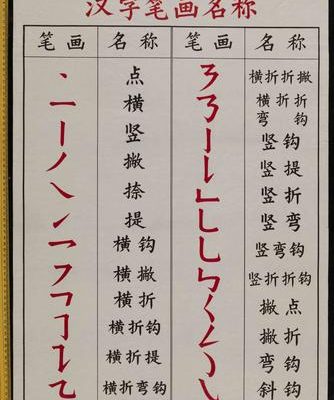 汉字笔画名称
笔画 名称 笔画 名称
点
横
竖
撇
捺
提
横钩
横撇
横折
横折钩
横折提
横折弯钩
横折折撇
横折折
弯钩
竖钩
竖提
竖折
竖弯
竖弯钩
竖折折钩
撇点
撇折
弯钩
斜钩